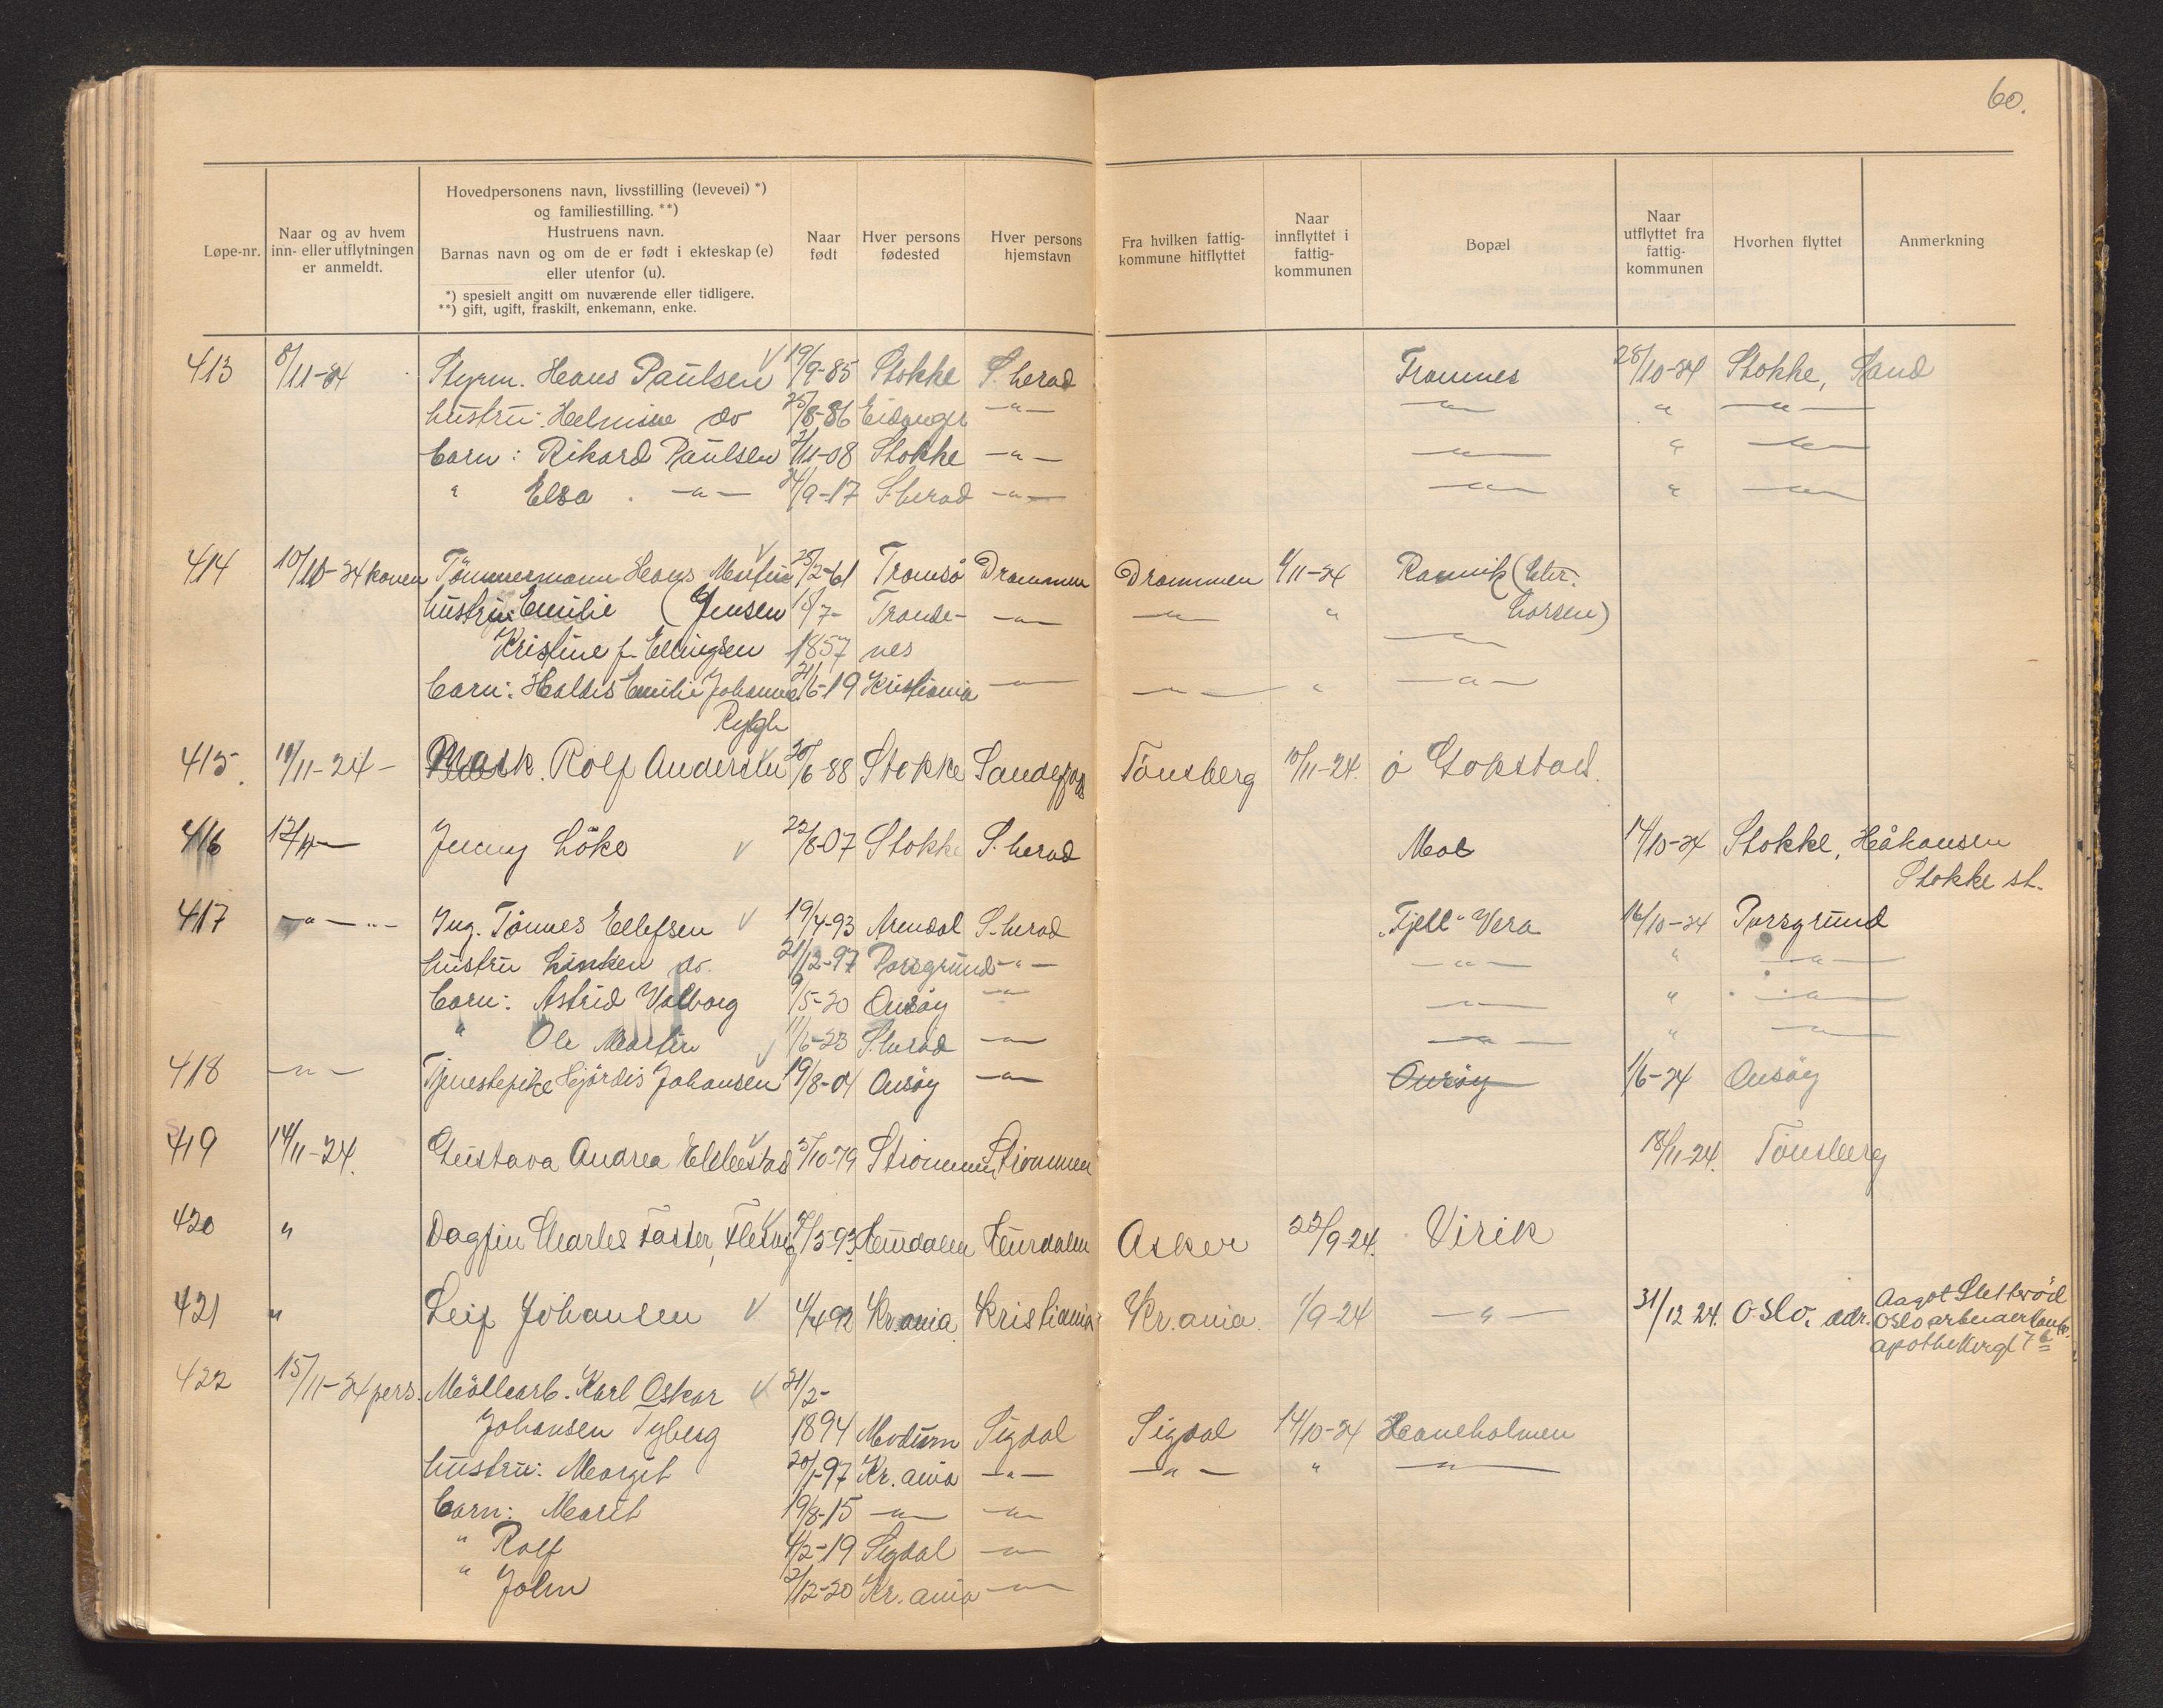 60.
Løpe-nr.
Naar og av hvem
inn- eller utflytningen
er anmeldt.
Hovedpersonens navn, livsstilling (levevei) *)
og familiestilling. **)
Hustruens navn.
Barnas navn og om de er født i ekteskap (e)
eller utenfor (u).
*) spesielt angitt om nuværende eller tidligere.
**) gift, ugift, fraskilt, enkemann, enke.
Naar
født
Hver persons
fødested
Hver persons
hjemstavn
Fra hvilken fattig-
kommune hitflyttet
Naar
innflyttet i
fattig-
kommunen
Bopæl
Naar
utflyttet fra
fattig-
kommunen
Hvorhen flyttet
Anmerkning
413 8/11-24 Styrm. Hans Paulsen 19/9-85 Stokke S. herad Framnes 28/10-24 Stokke, Sand
hustru: Helmine do 25/8-86 Eidanger -"- -"- " -"-
barn: Rikard Paulsen 2/11-08 Stokke -"- -"- " -"-
" Elsa -"- 24/9-17 S. herad -"- -"- " -"-
414 10/11-24 konen Tömmermann Hans Martin 25/2-61 Tromsö Drammen Drammen 1/11-24 Ranvik (Chr.
hustru: Emilie (Jensen 18/7- Tronde- -"- -"- " Larsen)
Kristine f. Ellingsen 1857 nes -"-
barn: Haldis Emilie Johanne 21/6-19 Kristiania -"- -"- " -"-
Rygh
415. 10/11-24 - Mask. Rolf Andersen 20/6-88 Stokke Sandefjord Tönsberg 10/11-24. ö Gokstad.
416 12/11- Jenny Löke 22/8-07 Stokke S. herad Moe 14/10-24 Stokke, Håkansen
Stokke st.
417 -"- Ing. Tönnes Ellefsen 19/4-93 Arendal S. herad "Fjell" Vera 16/10-24 Porsgrund
hustru Linken do. 21/12-97 Porsgrund -"- -"- " -"-
barn: Astrid Valborg 9/5-20 Onsöy -"- -"- " -"-
" Ole Martin 11/6-23 S. herad -"- -"- " -"-
418 -"- Tjenestepike Hjördis Johansen 19/8-04 Onsöy -"- Onsöy 1/6-24 Onsöy
419 14/11-24. Gustava Andrea Ellefstad 3/10-79 Strömmen Strömmen 18/11-24. Tönsberg
420 " Dagfin Charles Faster, 7/5-93 Hurdalen Hurdalen Asker 22/9-24. Virik
421 " Leif Johansen 4/4 92 Kr.ania Kristiania Kr.ania. 1/9-24 -"- 31/12 24. Oslo, adr. Aagot
Oslo
apothekergt 7 b
422 15/11-24 pers. Möllearb. Karl Oskar 21/2-
Johansen Tyberg 1894 Modum Sigdal Sigdal 14/10-24 Haneholmen
hustru: Margit 20/1-97 Kr. ania -"- -"- " -"-
barn: Marit 19/8-15 -"- -"-
" Rolf 4/2-19 Sigdal -"-
" John 2/12-20 Kr. ania -"-